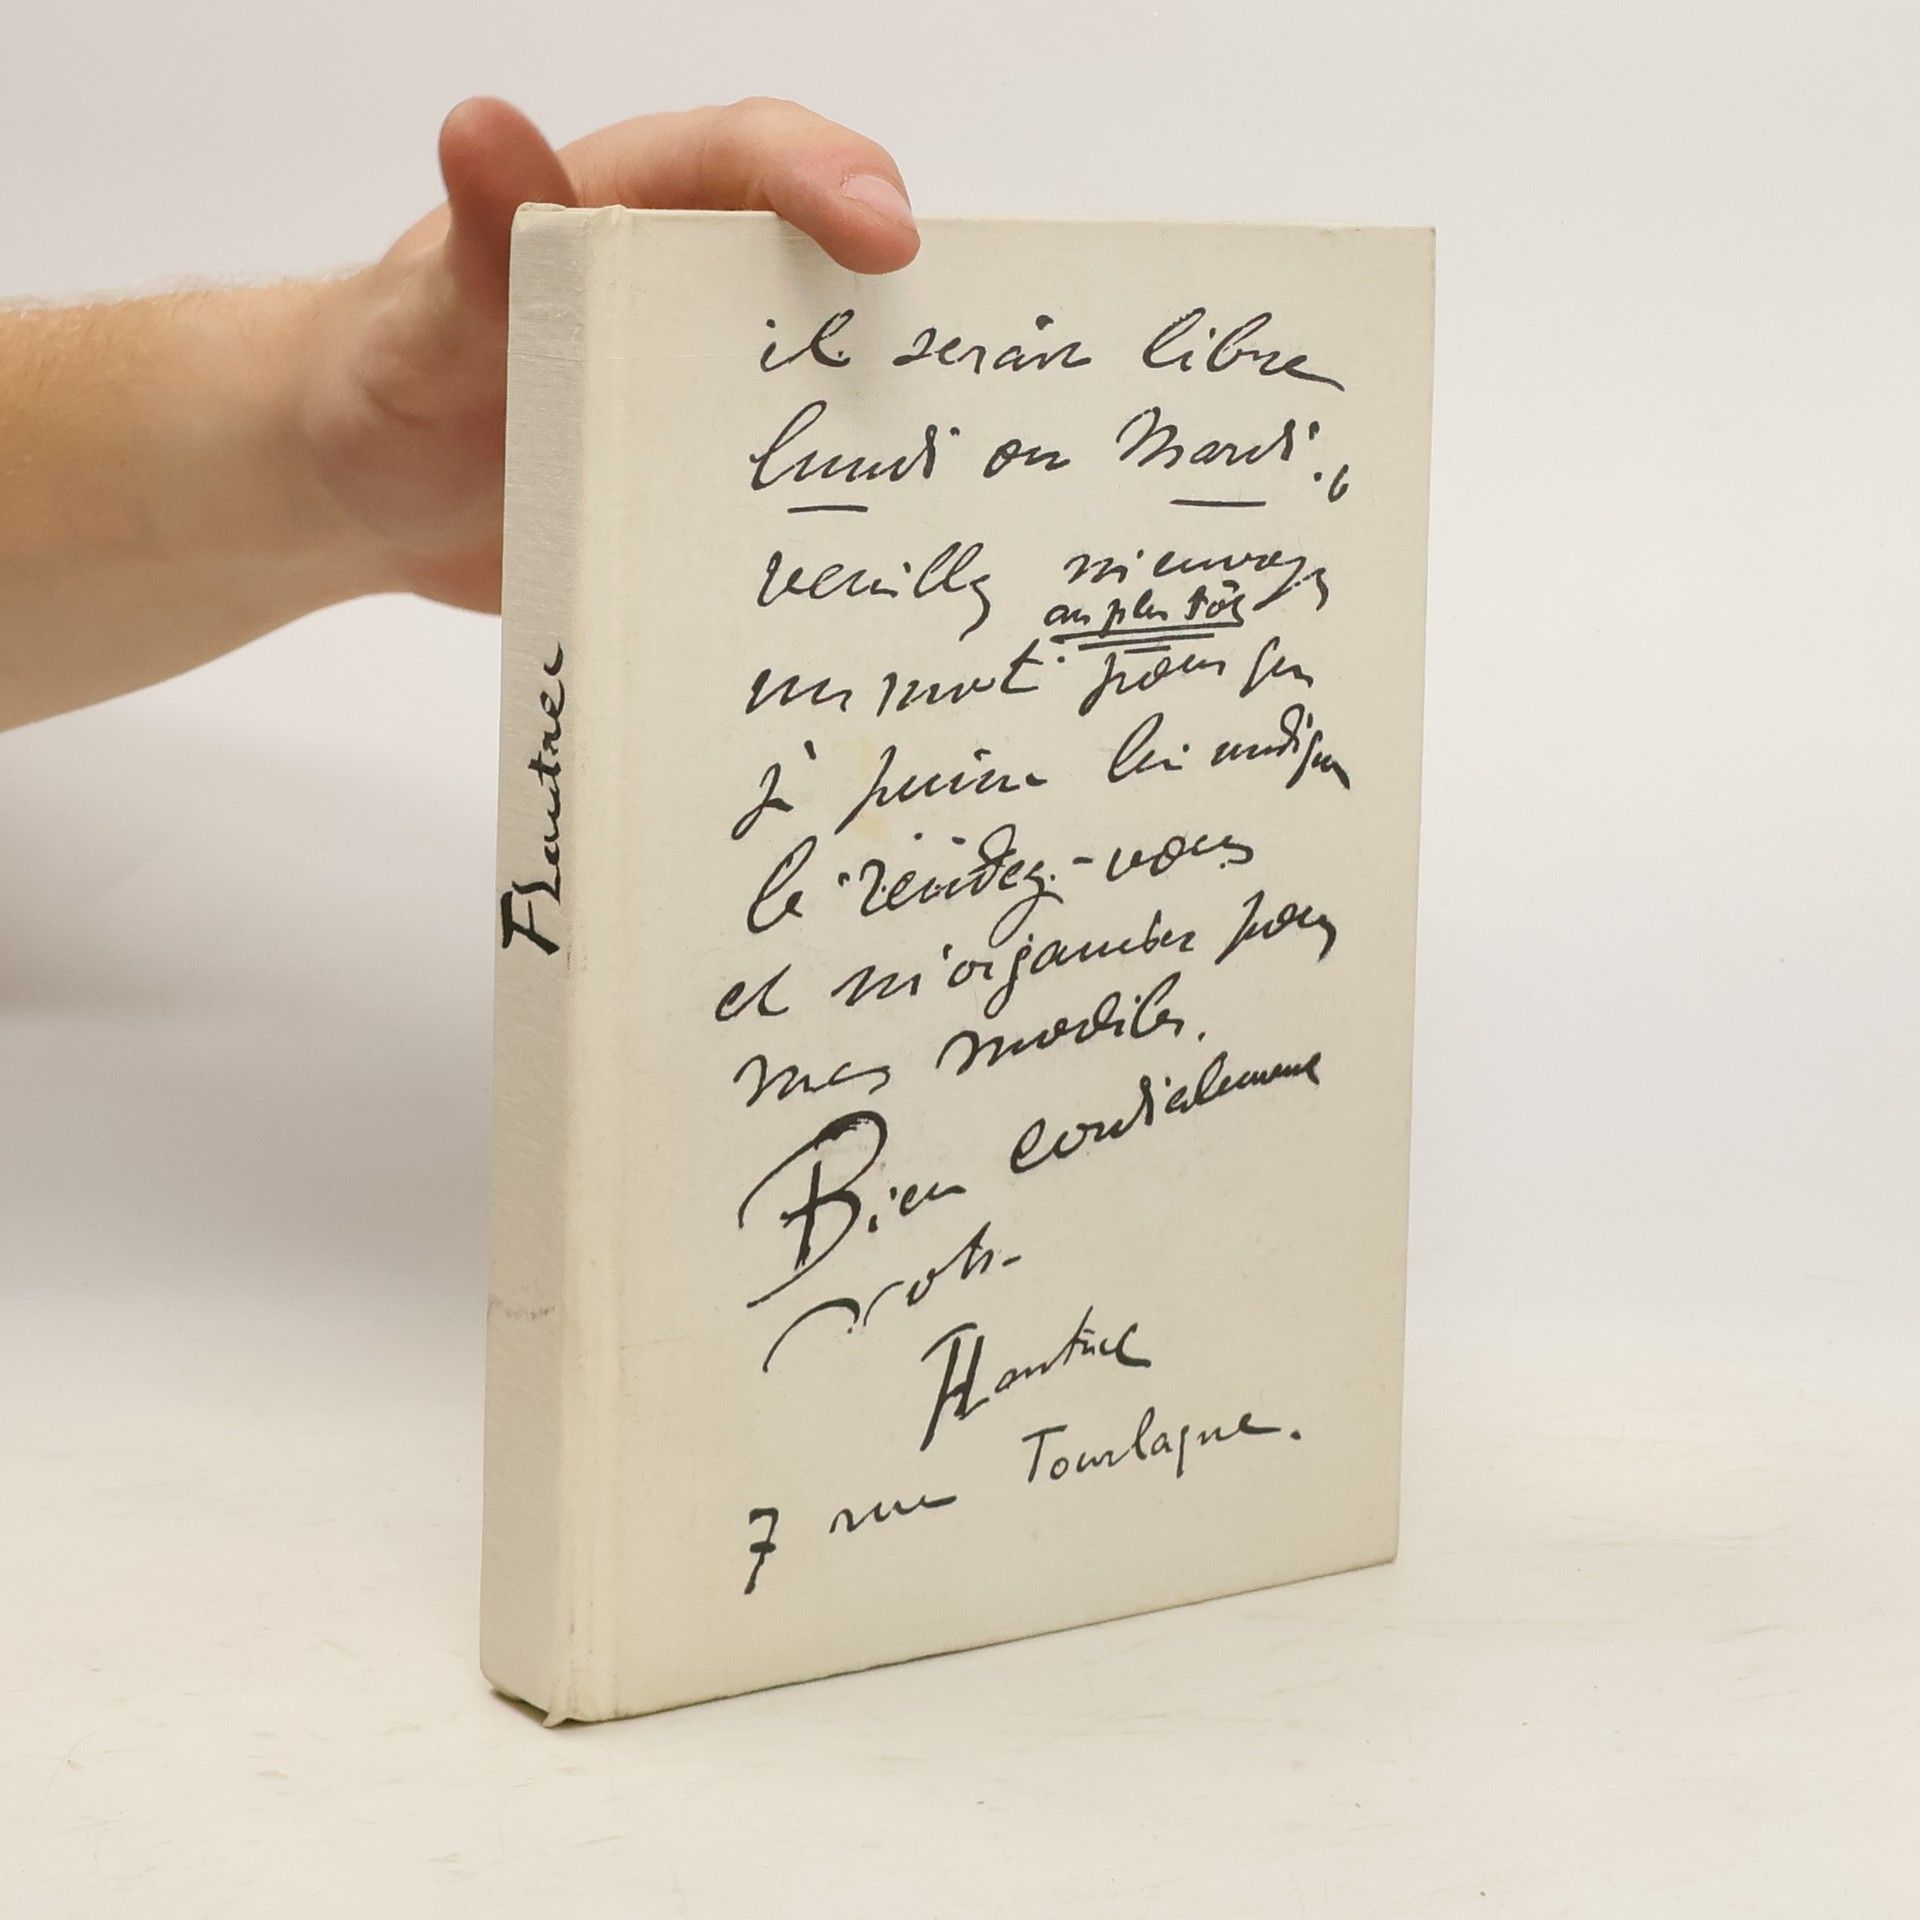 HLautrec
il serait libre
lundi ou Mardi.
veuillez m'envoyer
au plus tôt
un mot pour que
je puisse lui indiquer
le rendez-vous
et m'organiser pour
mes modèles.
Bien cordialement
votre
HLautrec
7 rue Tourlaque.